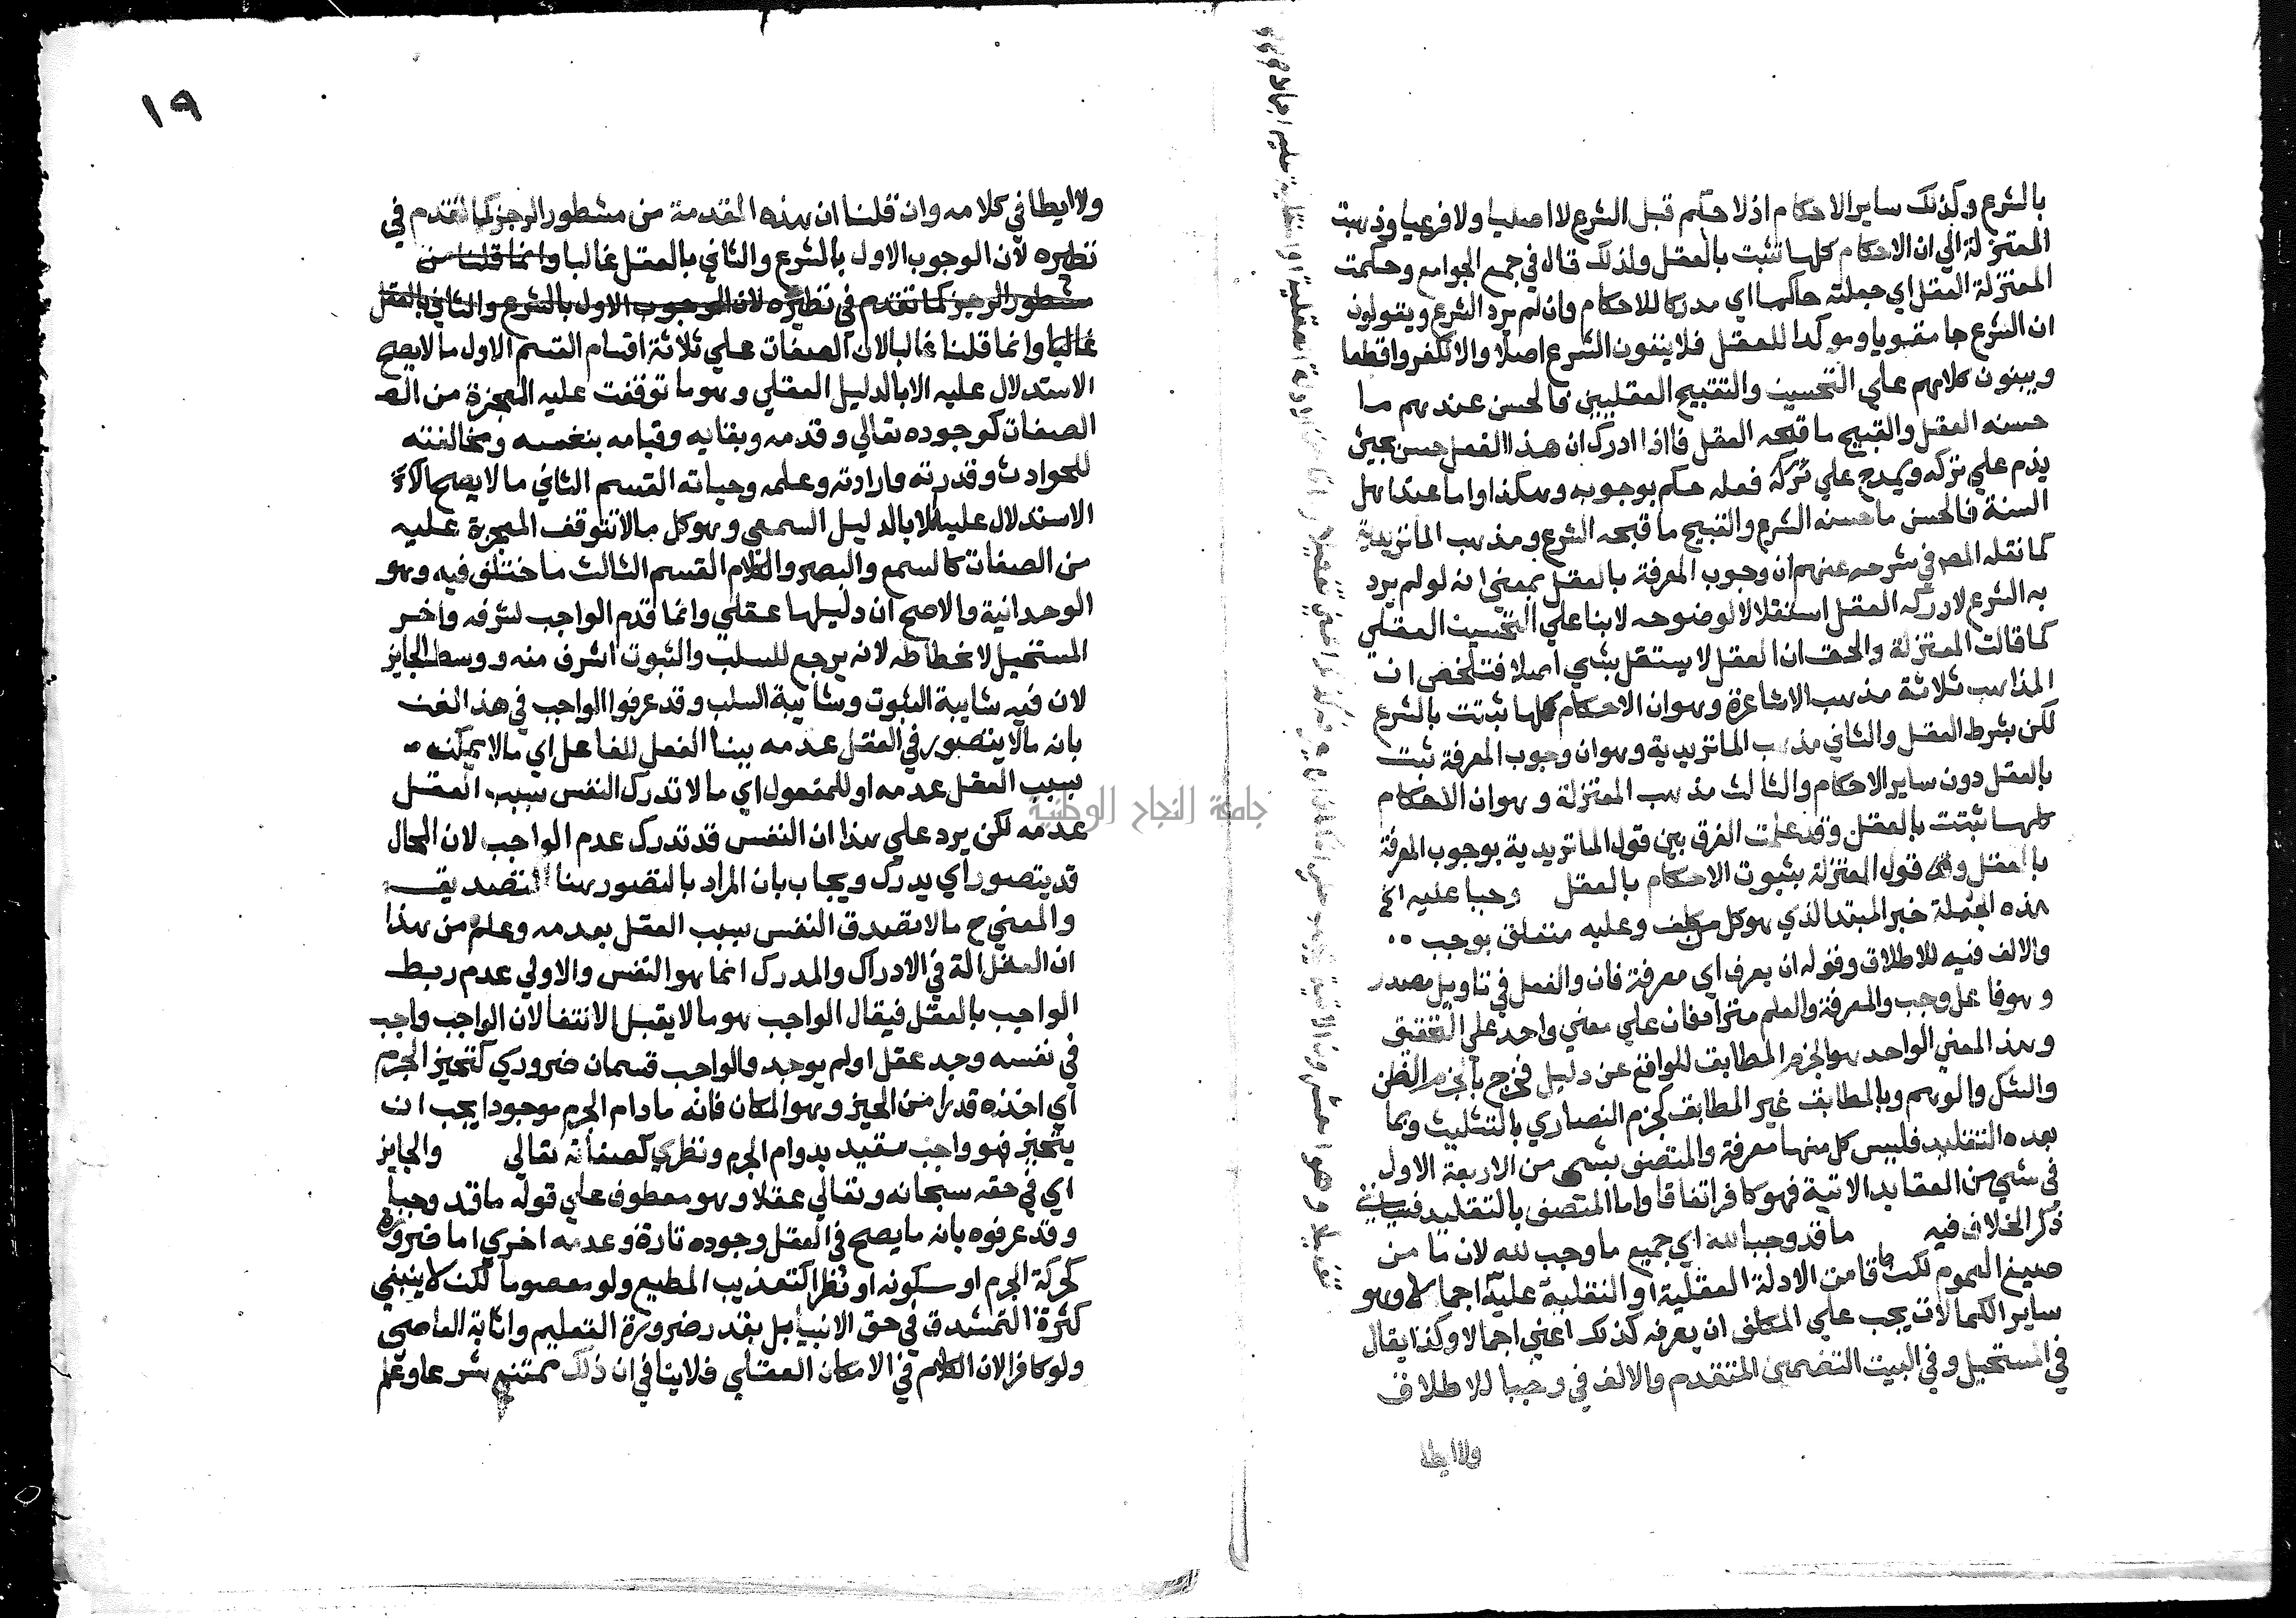 بالشرع وكذلك ساير الاحكام اذ لا حكم قبل الشرع لا اصليا ولا فرعيا وذهبت
المعتزلة الي ان الاحكام كلها تثبت بالعقل ولذلك قال في جمع الجوامع وحكمت
المعتزلة العقل اي جعلته حاكما اي مدركا للاحكام وان لم يرد الشرع ويقولون
ان الشرع جا مقويا وموكدا للعقل فلا ينفون الشرع اصلا والا لكفروا قطعا
ويبنون كلامهم علي التحسين والتقبيح العقليين فالحسن عندهم ما
حسنه العقل والقبيح ما قبحه العقل فاذا ادرك ان هذا الفعل حسن بحيث
يذم علي تركه ويمدح علي تركه فعله حكم بوجوبه وهكذا واما عند اهل
السنة فالحسن ما حسنه الشرع والقبيح ما قبحه الشرع ومذهب الماتريدية
كما نقله المص في شرحه عنهم ان وجوب المعرفة بالعقل بمعني انه لو لم يرد
به الشرع لادركه العقل استقلالا لوضوحه لا بنا علي التحسين العقلي
كما قالت المعتزلة والحق ان العقل لا يستقل بشي اصلا فتلخص ان
المذاهب ثلاثة مذهب الاشاعرة وهو ان الاحكام كلها ثبتت بالشرع
لكن بشرط العقل والثاني مذهب الماتريدية وهو ان وجوب المعرفة ثبت
بالعقل دون ساير الاحكام والثالث مذهب المعتزلة وهو ان الاحكام
كلها ثبتت بالعقل وقد علمت الفرق بين قول الماتريدية بوجوب المعرفة
بالعقل وقول المعتزلة بثبوت الاحكام بالعقل وجبا عليه الخ
هذه الجملة خبر المبتدا الذي هو كل مكلف وعليه متعلق بوجب
والالف فيه للاطلاق وقوله ان يعرف اي معرفة فان والفعل في تاويل مصدر
وهو فاعل وجب والمعرفة والعلم مترادفان علي معني واحد علي التحقيق
وهذا المعني الواحد هو الجزم المطابق للواقع عن دليل فخرج بالجزم الظن
والشك والوهم وبالمطابق غير المطابق كجزم النصاري بالتثليث وبما
بعده التقليد فليس كل منها معرفة والمتصف بشي من الاربعة الاول
في شي من العقايد الاتية فهو كافر اتفاقا واما المتصف بالتقليد
ذكر الخلاف فيه ما قد وجبا لله اي جميع ما وجب لله لان ما من
صيغ العموم لكن ما قامت الادلة العقلية او النقلية عليه اجمالا وهو
ساير الكمالات يجب علي المكلف ان يعرفه كذلك اعني اجمالا وكذا يقال
في المستحيل وفي البيت التضمين المتقدم والالف في وجبا للاطلاق
ولا ايطا
١٩
ولا ايطا في كلامه وان قلنا ان هذه المقدمة من مشطور الرجز كما تقدم في
نظيره لان الوجوب الاول بالشرع والثاني بالعقل غالبا وانما قلنا من
مشطور الرجز كما تقدم في نظيره لان الوجوب الاول بالشرع والثاني بالعقل
غالبا وانما قلنا غالبا لان الصفات علي ثلاثة اقسام القسم الاول ما لا يصح
الاستدلال عليه الا بالدليل العقلي وهو ما توقفت عليه المعجزة من الص
الصفات كوجوده تعالي وقدمه وبقايه وقيامه بنفسه ومخالفته
للحوادث وقدرته وارادته وعلمه وحياته القسم الثاني ما لا يصح
الاستدلال عليه الا بالدليل السمعي وهو كل ما لا تتوقف المعجزة عليه
من الصفات كالسمع والبصر والكلام القسم الثالث ما اختلف فيه وهو
الوحدانية والاصح ان دليلها عقلي وانما قدم الواجب لشرفه واخر
المستحيل لانحطاطه لانه يرجع للسلب والثبوت اشرف منه ووسط الجايز
لان فيه شايبة الثبوت وشايبة السلب وقد عرفوا الواجب في هذا الفن
بانه ما لا يتصور في العقل عدمه ببنا الفعل للفاعل اي ما لا يمكنه
بسبب العقل عدمه او للمفعول اي ما لا تدرك النفس بسبب العقل
عدمه لكن يرد علي هذا ان النفس قد تدرك عدم الواجب لان المحال
قد يتصور اي يدرك ويجاب بان المراد بالتصور هنا التصديق
والمعني ح ما لا تصدق النفس بسبب العقل بعدمه وعلم من هذا
ان العقل الة في الادراك والمدرك انما هو النفس والاولي عدم ربط
الواجب بالعقل فيقال الواجب هو ما لا يقبل الانتفا لان الواجب واجب
في نفسه وجد عقل اولم يوجد والواجب قسمان ضروري كتحيز الجرم
اي اخذه قدرا من الحيز وهو المكان فانه ما دام الجرم موجودا يجب ان
يتحيز فهو واجب مقيد بدوام الجرم ونظري كصفاته تعالي والجايز
اي في حقه سبحانه وتعالي عقلا وهو معطوف علي قوله ما قد وجبا
وقد عرفوه بانه ما يصح في العقل وجوده تارة وعدمه اخري اما ضرورة
كحركة الجرم او سكونه او نظرا كتعذيب المطيع ولو معصوما لكن لا ينبغي
كثرة التمشدق في حق الانبيا بل بقدر ضرورة التعليم واثابة العاصي
ولو كافرا لان الكلام في الامكان العقلي فلا ينافي ان ذلك ممتنع شرعا وعلم
جامعة النجاح الوطنية